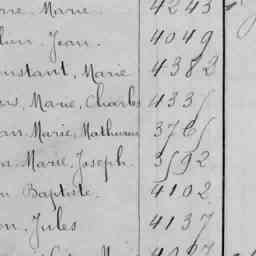 Marie. 4243
Jean. 4049
onstant, Marie 4382
Marie, Charles 4335
Marie, Mathurin 3765
Marie, Joseph. 3592
Baptiste. 4102
Jules 4137